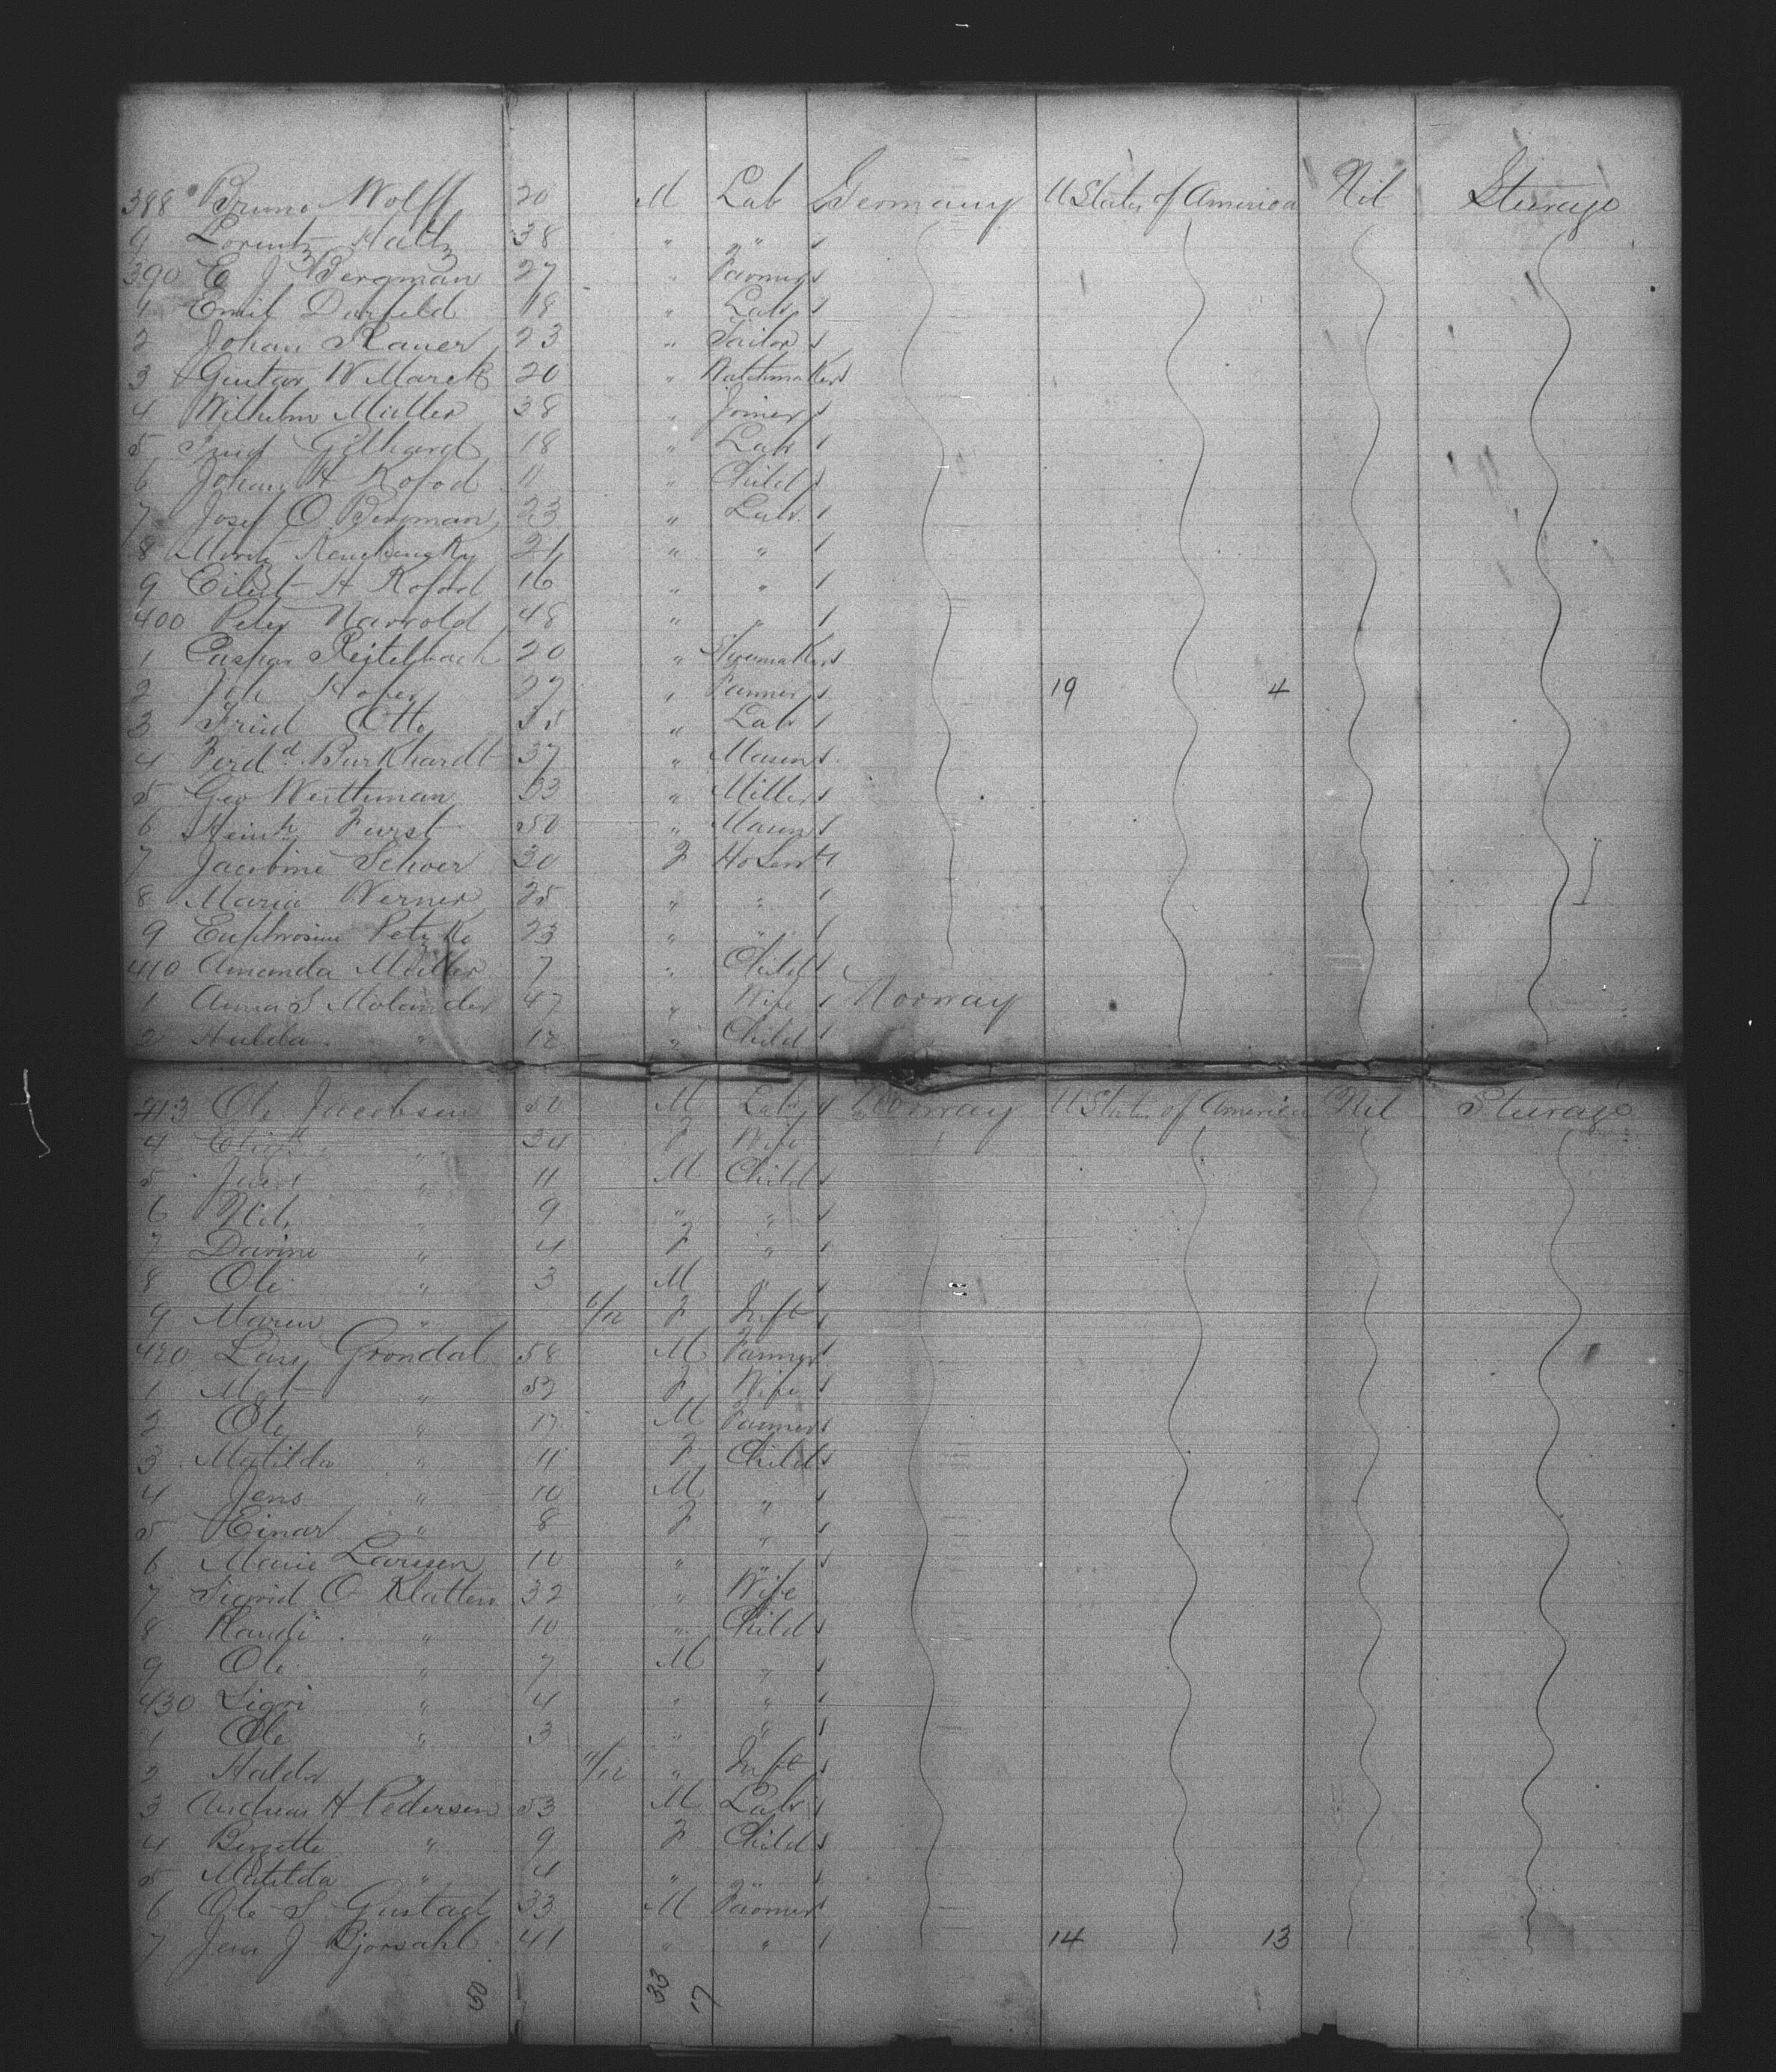 388 Bruno Wolff 20 M Lab Germany U States of America Nil Steerage
9 Lorentz Haltz 38 " "
390 E J Bergman 27 " Farmer
1 Emil Darfeld 18 " Lab
2 Johan Rauer 23 " Tailor
3 Gustav W Marck 20 " Watchmaker
4 Wilhelm Müller 38 " Joiner
5 Fried 18 " Lab
6 Johan H Kofod 11 " Child
7 Josef O Bergman 23 " Lab
8 Moritz " "
9 H Kofod 16 " "
400 Peter Narrold 48 " "
1 Caspar 20 " Shoemaker
2 Joh 27 " Farmer 19 4
3 Fried Otto 35 " Lab
4 Ferd d Burkhardt 37 " Mason
5 Geo 33 " Miller
6 Heinh Furst 50 " Mason
7 Jacobine Schoer 30 F Ho Servt
8 Maria Werner 25 " "
9 23 " "
410 Amanda Müller 7 " Child
1 Anna S Molander 47 " Wife Norway
2 Hulda " 12 " Child
413 Ole Jacobsen 50 M Lab Norway U States of America Nil Steerage
4 " 34 F Wife
5 " 11 M Child
6 Nils " 9 " "
7 Davine " 4 F "
8 Ole " 3 M "
9 Maren " 6/12 F Inft
420 Lars Grondal 58 M Farmer
1 " 52 F Wife
2 Ole " 17 M Farmer
3 Matilda " 11 F Child
4 Jens " 10 M "
5 Einar " 8 F "
6 Marie Larssen 10 " "
7 Sigrid O Klatten 32 " Wife
8 Randi " 10 " Child
9 Ole " 7 M "
430 Sigri " 4 " "
1 Ole " 3 " "
2 " 11/12 " Inft
3 Andreas H Pedersen 53 M Lab
4 " 9 F Child
5 Matilda " 4 " "
6 Ole S Gustad 33 M Farmer
7 J 41 " " 14 13
50 33 17